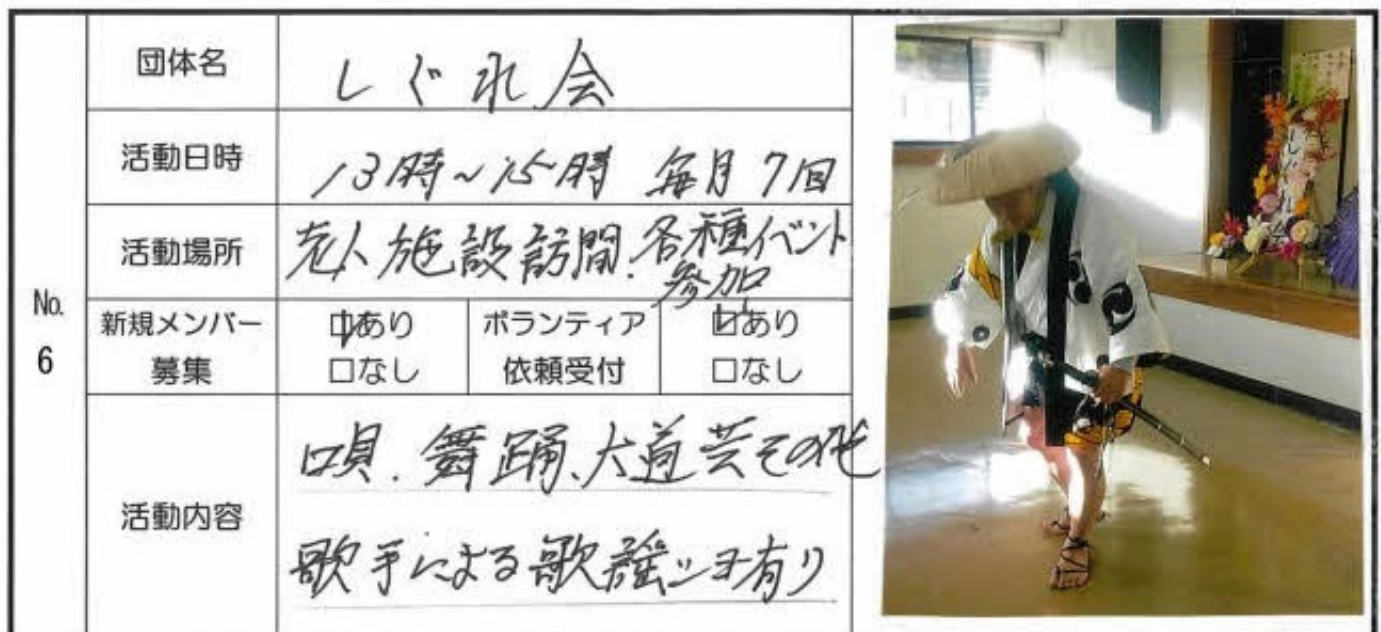 No.
6
団体名
しぐれ会
活動日時
13時~15時 毎月7回
活動場所
老人施設訪問.各種イベント
参加
新規メンバー
募集
☑あり
□なし
ボランティア
依頼受付
☑あり
□なし
活動内容
唄.舞踊、大道芸その他
歌手による歌謡ショー有り